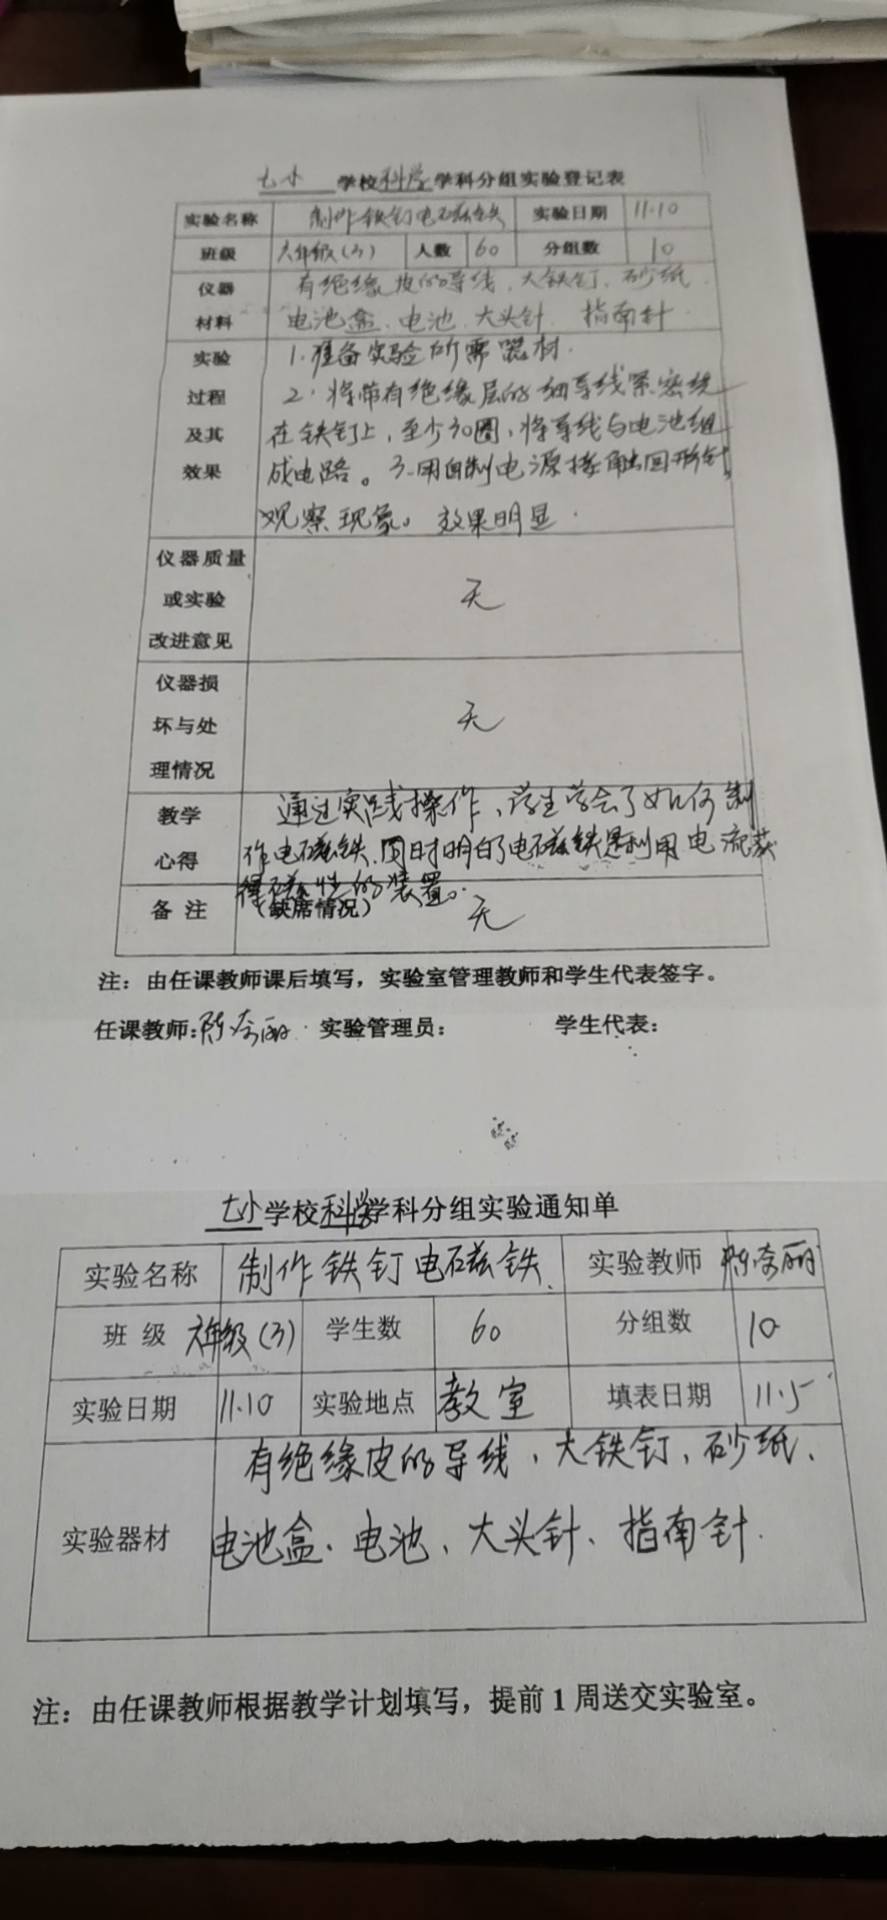 七小学校科学学科分组实验登记表
实验名称 制作铁钉电磁铁 实验日期 11.10
班级 六年级(3) 人数 60 分组数 10
仪器 有绝缘皮的导线、大铁钉、砂纸
材料 电池盒、电池、大头针 指南针
实验 1.准备实验所需器材.
过程 2.将带有绝缘层的细导线紧密绕
及其 在铁钉上,至少30圈,将导线与电池组
效果 成电路。3.用自制电源接触回形针,
观察现象。效果明显.
仪器质量
或实验 无
改进意见
仪器损
坏与处 无
理情况
教学 通过实践操作,学生学会了如何制
心得 作电磁铁.同时明白了电磁铁是利用电流获
得磁性的装置.
备注 (缺席情况) 无
注:由任课教师课后填写,实验室管理教师和学生代表签字。
任课教师:陈 丽 实验管理员: 学生代表:
七小学校科学学科分组实验通知单
实验名称 制作铁钉电磁铁. 实验教师 陈 丽
班级 六年级(3) 学生数 60 分组数 10
实验日期 11.10 实验地点 教室 填表日期 11.5
有绝缘皮的导线、大铁钉、砂纸、
实验器材 电池盒、电池、大头针、指南针.
注:由任课教师根据教学计划填写,提前1周送交实验室。